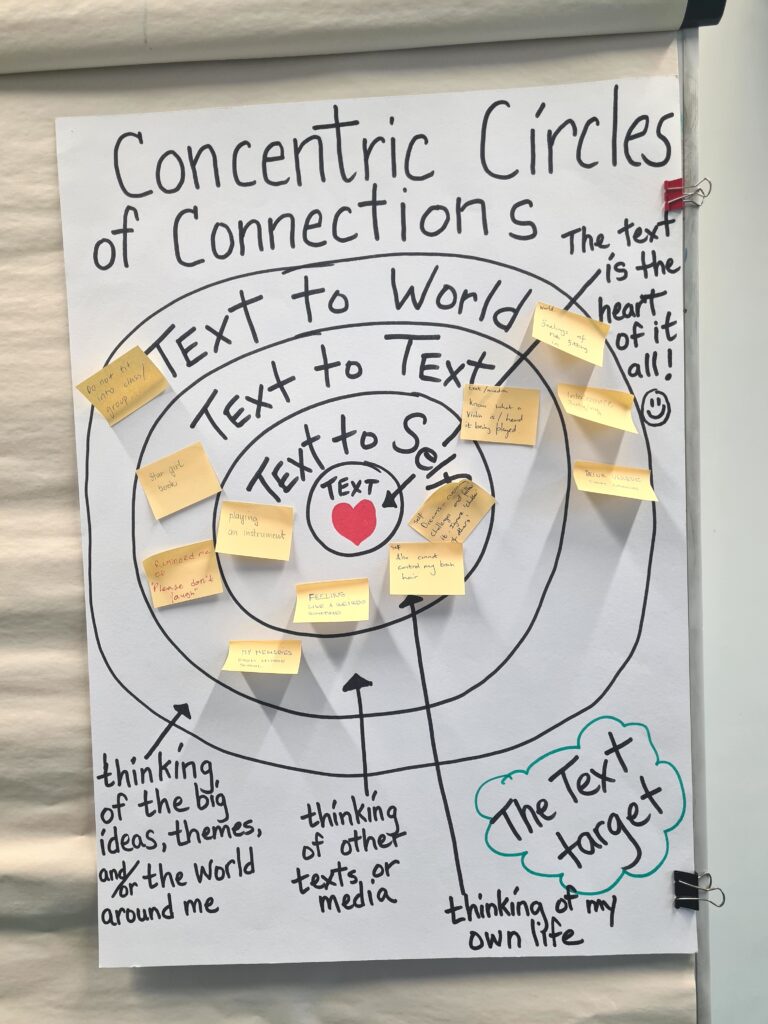 Concentric Circles
of Connections
The text
is the
heart
of it
all!
Text to World
Text to Text
Text to Self
TEXT
World
Feelings of
not fitting
in
Do not fit
into class/
group...
text/media
Know what a
violin is/heard
it being played
Star girl
book
playing
an instrument
self
Dreams
challenge and
it
others
Self
control my
hair
Reminded me
of
"Please don't
laugh"
FEELING
LIKE A WEIRDO
MY MEMORIES
thinking
of the big
ideas, themes,
and/or the world
around me
thinking
of other
texts or
media
thinking of my
own life
The Text
target